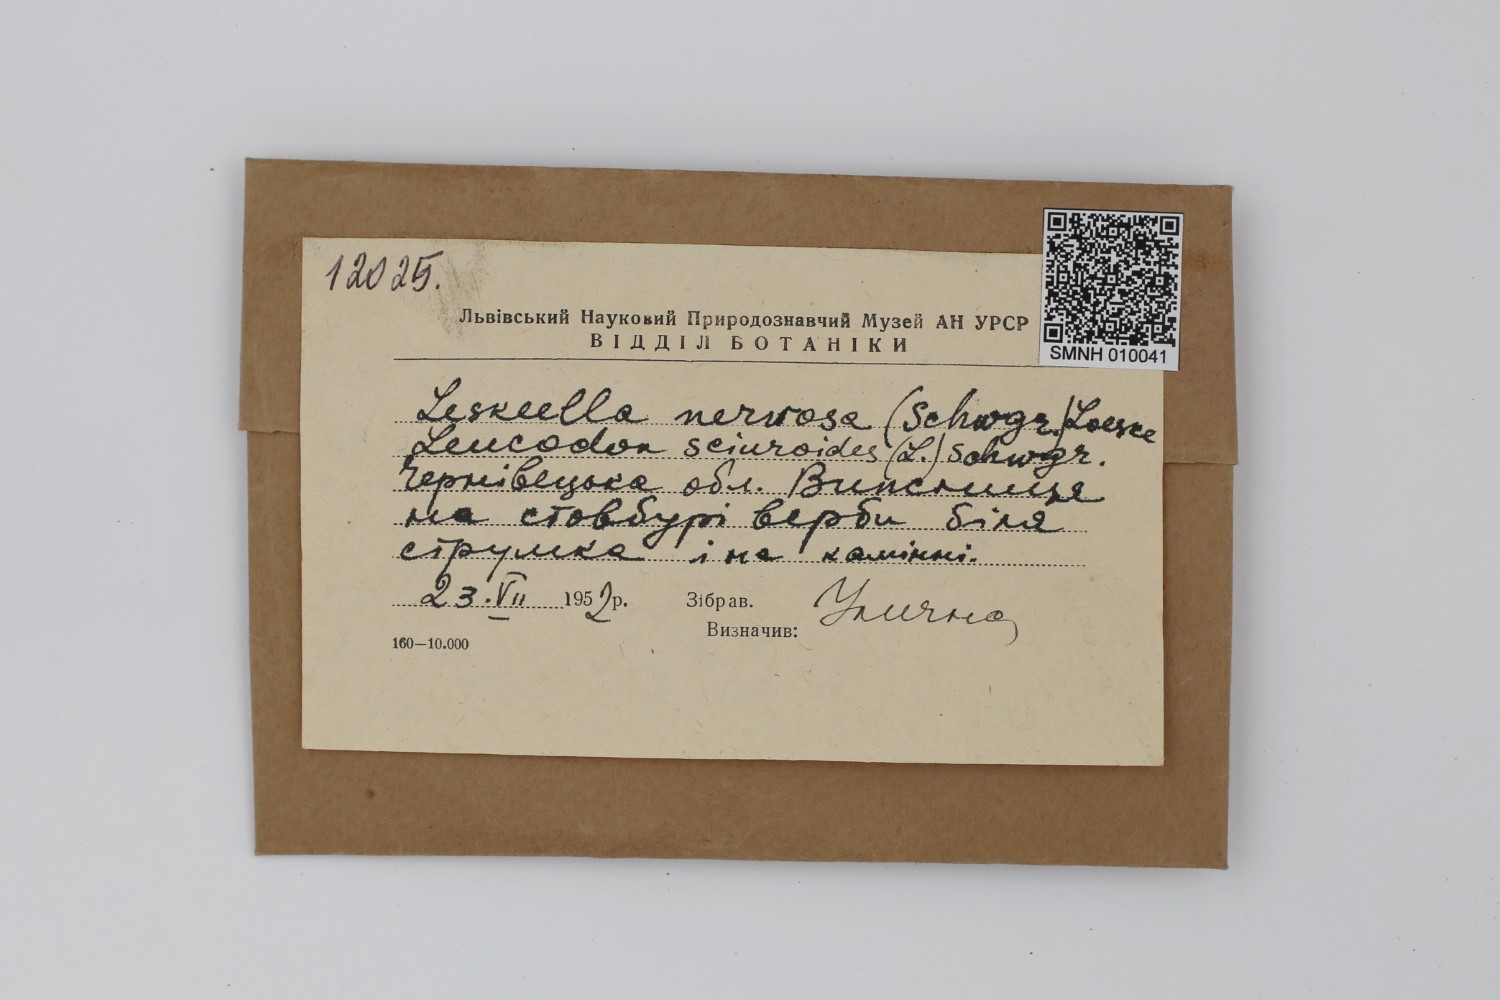 12025.
Львівський Науковий Природознавчий Музей АН УРСР
ВІДДІЛ БОТАНІКИ
SMNH 010041
Leskeella nervosa (Schwgr.) Loeske
Leucodon sciuroides (L.) Schwgr.
Чернівецька обл. Випсниця
на стовбурі верби біля
струмка і на камінні.
23.VII 1952 р. Зібрав. Улична
Визначив:
160—10.000